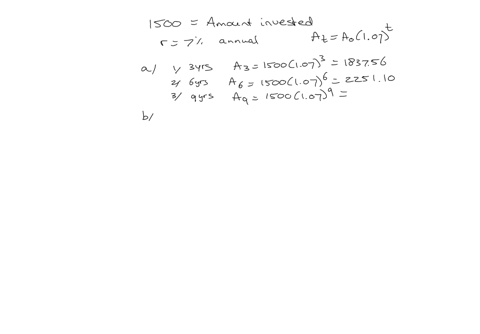 1500 = Amount invested
r = 7% annual At = A0(1.07)^t
a/ 1/ 3yrs A3 = 1500(1.07)^3 = 1837.56
2/ 6yrs A6 = 1500(1.07)^6 = 2251.10
3/ 9yrs A9 = 1500(1.07)^9 =
b/